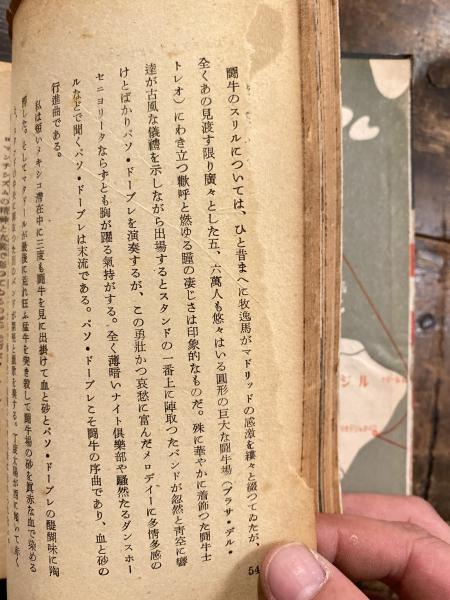 闘牛のスリルについては、ひと昔まへに牧逸馬がマドリッドの感激を縷々と綴つてゐたが、
全くあの見渡す限り廣々とした五、六萬人も悠々はいる圓形の巨大な闘牛場（プラサ・デル・
トレオ）にわき立つ歡呼と燃ゆる瞳の凄じさは印象的なものだ。殊に華やかに着飾つた闘牛士
達が古風な儀禮を示しながら出場するとスタンドの一番上に陣取つたバンドが忽然と青空に響
けとばかりパソ・ドーブレを演奏するが、この勇壯かつ哀愁に富んだメロデイーに多情多感の
セニョリータならずとも胸が躍る氣持がする。全く薄暗いナイト倶樂部や騷然たるダンスホー
ルなどで聞くパソ・ドーブレは末流である。パソ・ドーブレこそ闘牛の序曲であり、血と砂の
行進曲である。
私は短いメキシコ滯在中に三度も闘牛を見に出掛けて血と砂とパソ・ドーブレの醍醐味に陶
醉した。そしてマタドールが最後に荒れ狂ふ猛牛を突き殺して闘牛場の砂を眞赤な血で染める
54
ジル